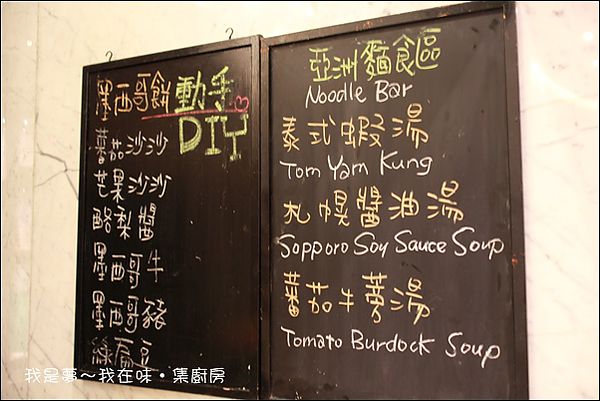 墨西哥餅動手
DIY
蕃茄沙沙
芒果沙沙
酪梨醬
墨西哥牛
墨西哥豬
綠扁豆
亞洲麵食區
Noodle Bar
泰式蝦湯
Tom Yam Kung
札幌醬油湯
Sopporo Soy Sauce Soup
蕃茄牛蒡湯
Tomato Burdock Soup
我是夢～我在味·集廚房